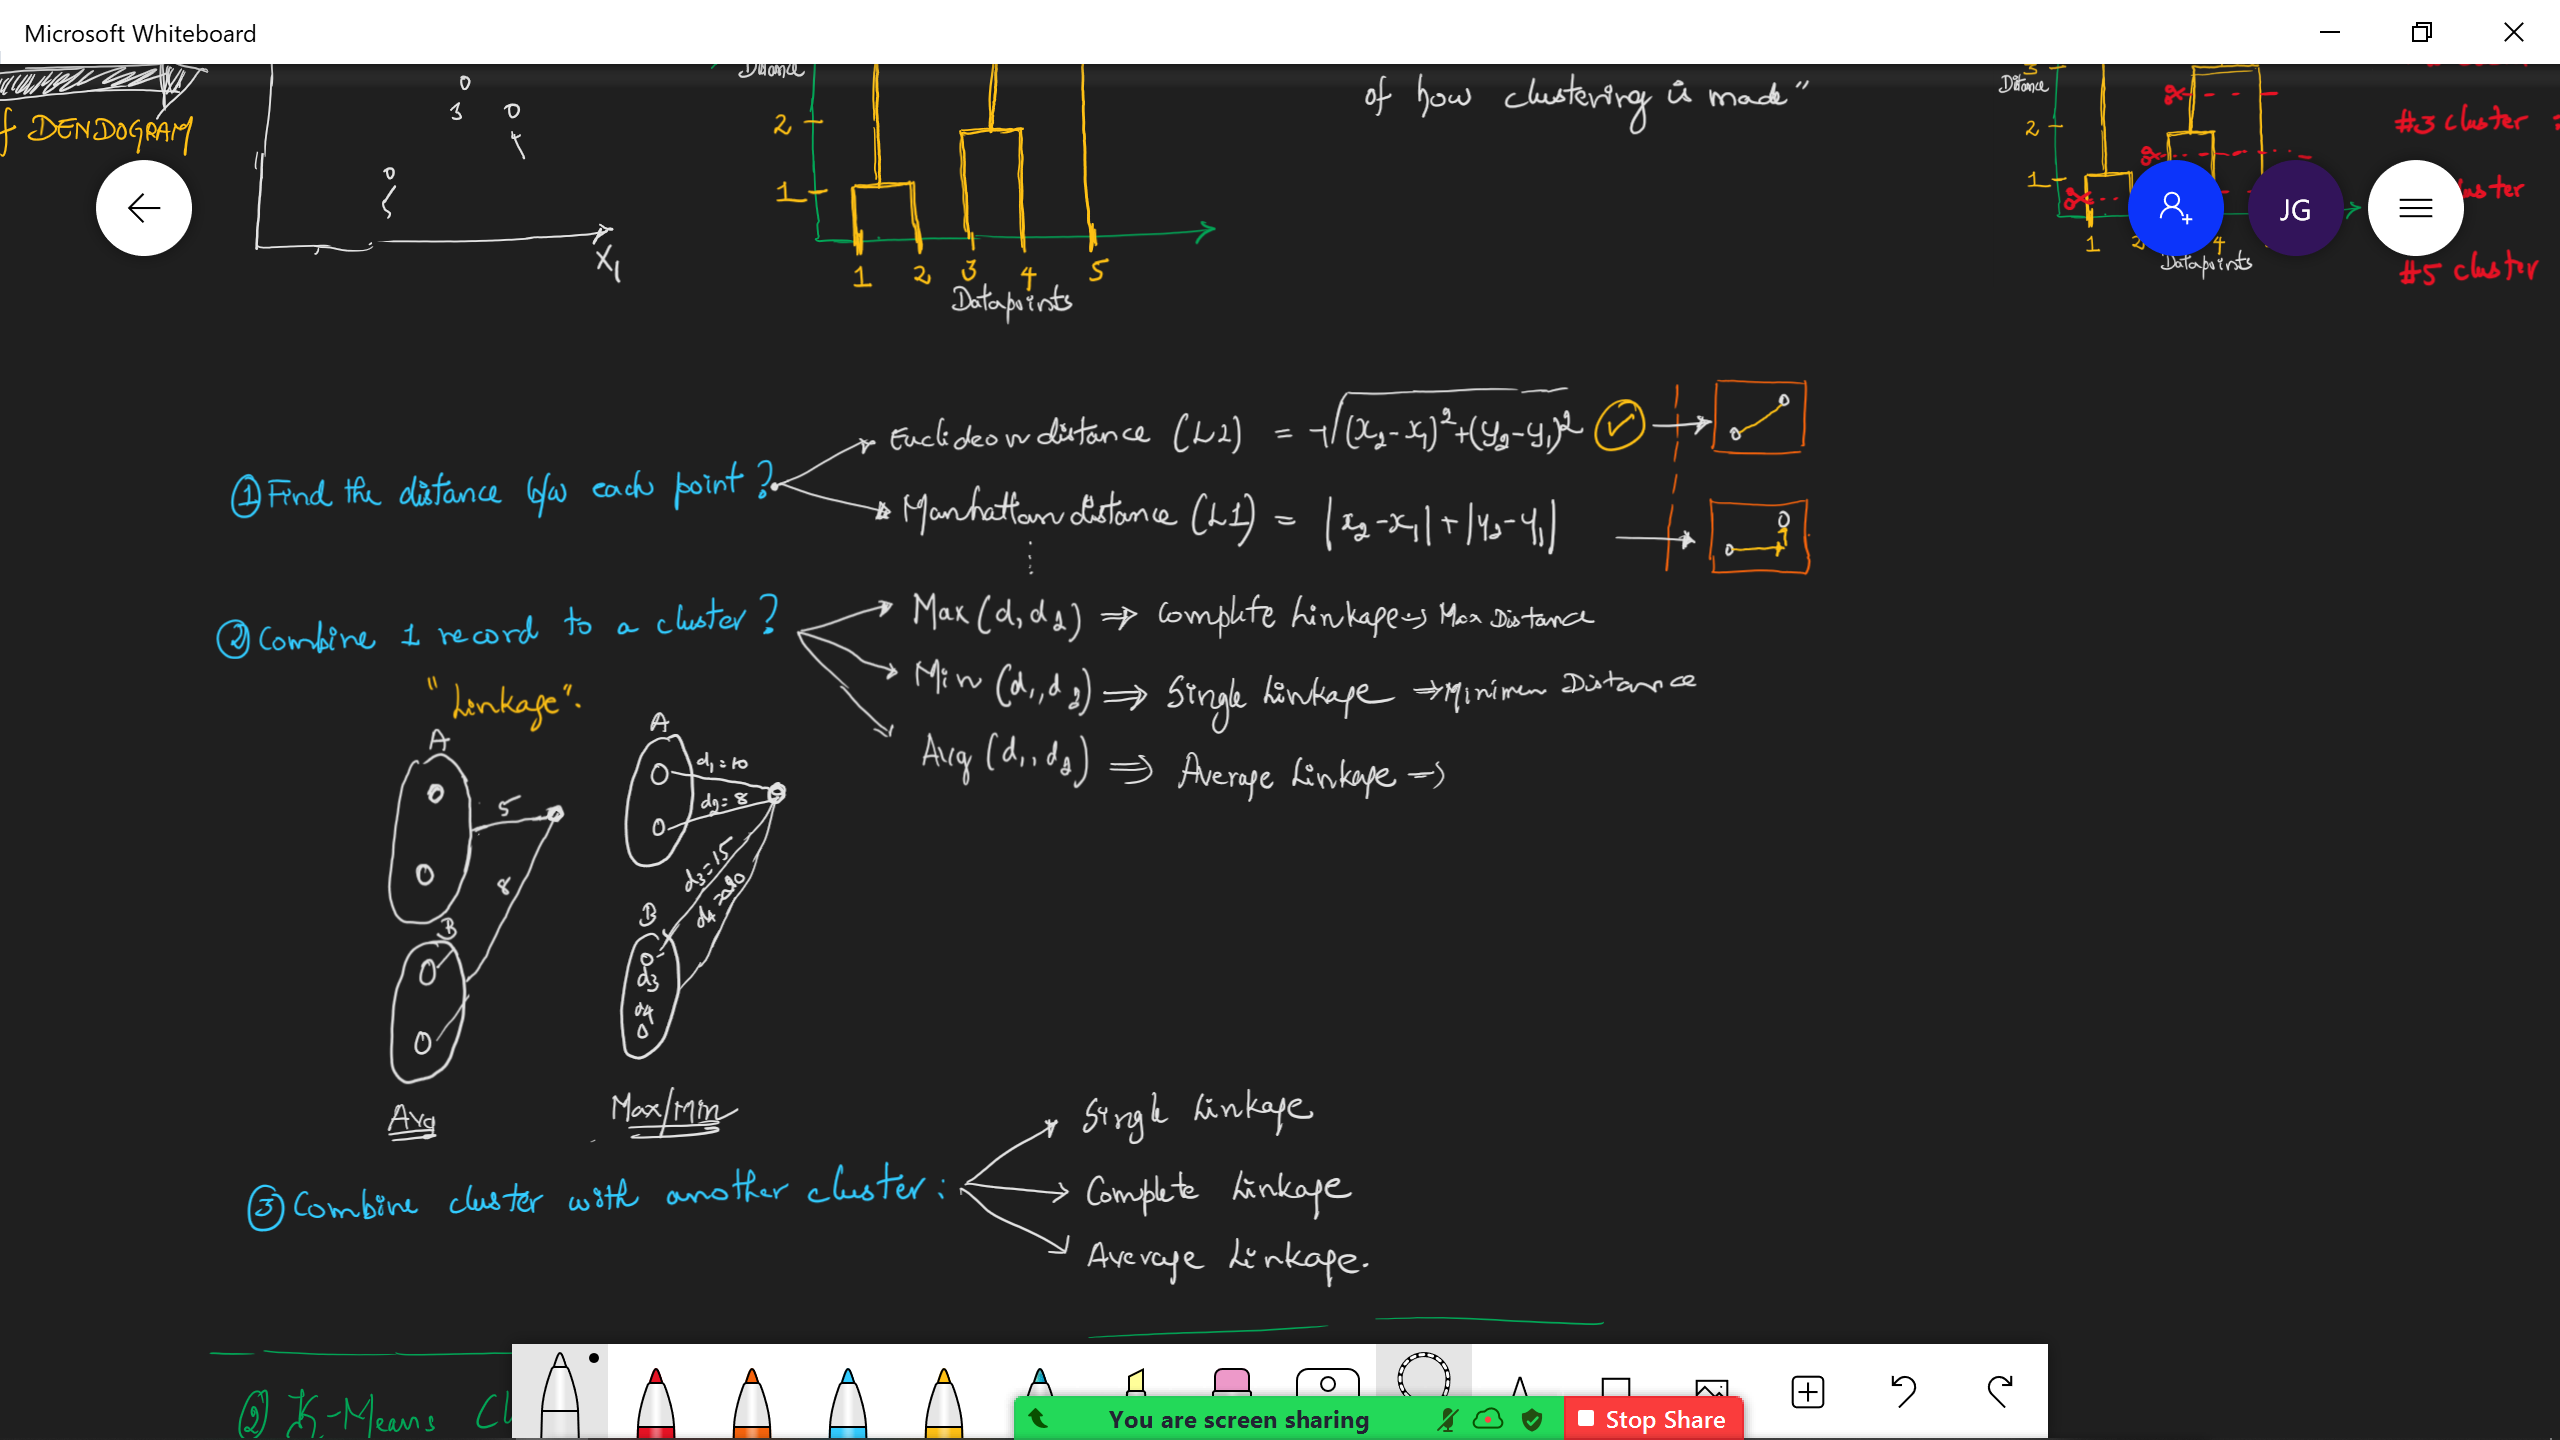 Microsoft Whiteboard
Distance
of how clustering is made"
3
Distance
0
3
0
4
f DENDOGRAM
2
2
#3 cluster =
0
5
1
1
uster
JG
X1
1 2 3 4 5
Datapoints
1 2 4
Datapoints
#5 cluster
① Find the distance b/w each point?
Euclideon distance (L2) = √(x2-x1)²+(y2-y1)²
Manhattan distance (L1) = |x2-x1|+|y2-y1|
② Combine 1 record to a cluster?
"Linkage".
Max (d, d2) ⇒ Complete Linkage → Max Distance
Min (d1, d2) ⇒ Single Linkage ⇒ Minimum Distance
Avg (d1, d2) ⇒ Average Linkage →
A
5
8
B
Avg
A
d1=10
d2=8
d3=15
d4=20
B
d3
d4
Max/Min
③ Combine cluster with another cluster:
Single Linkage
Complete Linkage
Average Linkage.
② K-Means Cl
You are screen sharing
Stop Share